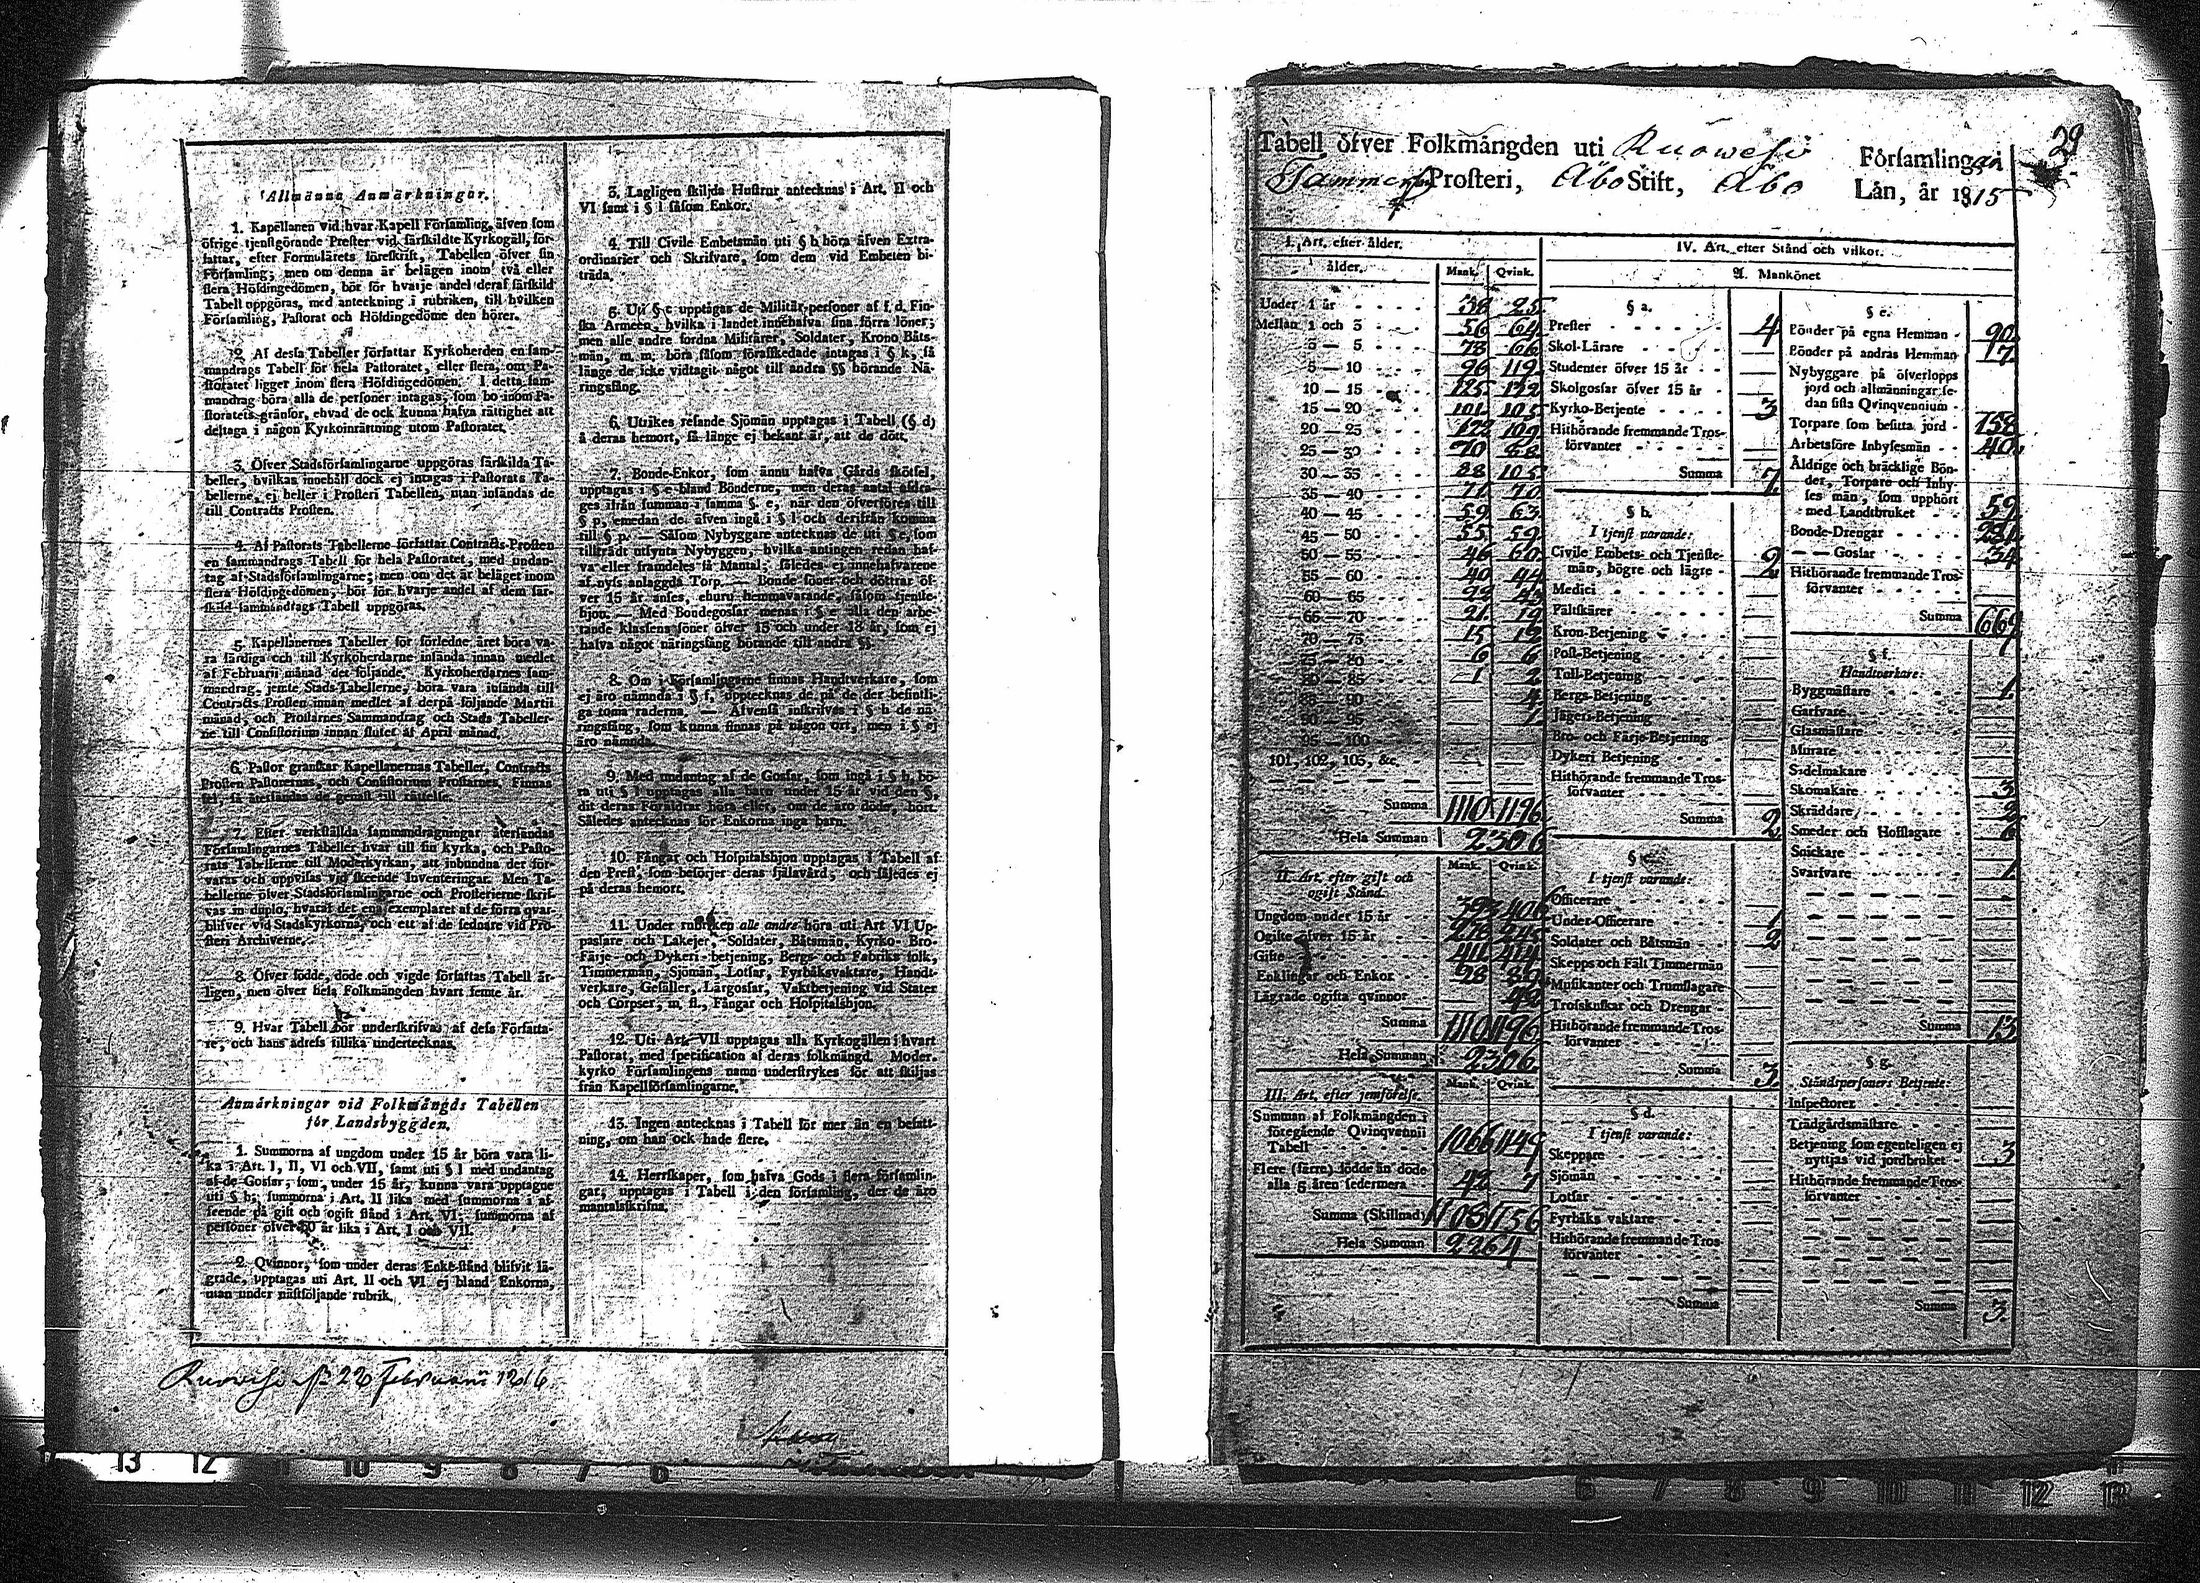 Allmänna Anmärkningar.
1. Kapellanen vid hvar Kapell Församling, äfven som
öfrige tjenstgörande Prester vid särskildte Kyrkogäll, för-
fattar, efter Formulärets föreskrift, Tabellen öfver sin
Församling; men om denna är belägen inom två eller
flera Höfdingedömen, bör för hvarje andel deraf särskild
Tabell uppgöras, med anteckning i rubriken, till hvilken
Församling, Pastorat och Höfdingedöme den hörer.
2. Af dessa Tabeller författar Kyrkoherden en sam-
mandrags Tabell för hela Pastoratet, eller flera, om Pa-
storatet ligger inom flera Höfdingedömen. I detta sam-
mandrag böra alla de personer intagas, som bo inom Pa-
storatets gränsor, ehvad de ock kunna hafva rättighet att
deltaga i någon Kyrkoinrättning utom Pastoratet.
3. Öfver Stadsförsamlingarne uppgöras särskilda Ta-
beller, hvilkas innehåll dock ej intagas i Pastorats Ta-
bellerne, ej heller i Prosteri Tabellen, utan insändas de
till Contracts Prosten.
4. Af Pastorats Tabellerne författar Contracts-Prosten
en sammandrags Tabell för hela Pastoratet, med undan-
tag af Stadsförsamlingarne; men om det är beläget inom
flera Höfdingedömen, bör för hvarje andel af dem sär-
skild sammandrags Tabell uppgöras.
5. Kapellanernes Tabeller för förledne året böra va-
ra färdiga och till Kyrkoherdarne insända innan medlet
af Februarii månad det följande. Kyrkoherdarnes sam-
mandrag, jemte Stads-Tabellerne, böra vara insända till
Contracts Prosten innan medlet af derpå följande Martii
månad, och Prostarnes Sammandrag och Stads Tabeller-
ne till Consistorium innan slutet af April månad.
6. Pastor granskar Kapellanernas Tabeller, Contracts
Prosten Pastorernas, och Consistorium Prostarnes. Finnas
fel, så återsändas de genast till rättelse.
7. Efter verkställda sammandragningar återsändas
Församlingarnes Tabeller hvar till sin kyrka, och Pasto-
rats Tabellerne till Moderkyrkan, att inbundna der för-
varas och uppvisas vid skeende Inventeringar. Men Ta-
bellerne öfver Stadsförsamlingarne och Prosterierne skrif-
vas in duplo, hvaraf det ena exemplaret af de förra qvar-
blifver vid Stadskyrkorna, och ett af de sednare vid Pro-
steri Archiverne.
8. Öfver födde, döde och vigde författas Tabell år-
ligen, men öfver hela Folkmängden hvart femte år.
9. Hvar Tabell bör underskrifvas af dess Författa-
re, och hans adress tillika undertecknas.
Anmärkningar vid Folkmängds Tabellen
för Landsbyggden.
1. Summorna af ungdom under 15 år böra vara li-
ka i Art. I, II, VI och VII, samt uti § l med undantag
af de Gossar, som, under 15 år, kunna vara upptagne
uti § b; summorna i Art. II lika med summorna i af-
seende på gift och ogift stånd i Art. VI; summorna af
personer öfver 60 år lika i Art. I och VII.
2. Qvinnor, som under deras Enke-stånd blifvit lä-
grade, upptagas uti Art. II och VI ej bland Enkorna,
utan under nästföljande rubrik.
3. Lagligen skiljda Hustrur antecknas i Art. II och
VI samt i § l såsom Enkor.
4. Till Civile Embetsmän uti § b höra äfven Extra-
ordinarier och Skrifvare, som dem vid Embeten bi-
träda.
5. Uti § c upptagas de Militär-personer af f. d. Fin-
ska Arméen, hvilka i landet innehafva sina förra löner;
men alle andre fordna Militärer, Soldater, Krono Båts-
män, m. m. böra såsom förafskedade intagas i § k, så
länge de icke vidtagit något till andra §§ hörande Nä-
ringsfång.
6. Utrikes resande Sjömän upptagas i Tabell (§ d)
å deras hemort, så länge ej bekant är, att de dött.
7. Bonde-Enkor, som ännu hafva Gårds skötsel,
upptagas i § e bland Bönderne, men deras antal afdra-
ges ifrån summan i samma § e, när den öfverföres till
§ p, emedan de äfven ingå i § l och derifrån komma
till § p. — Såsom Nybyggare antecknas de uti § e, som
tillträdt utsynta Nybyggen, hvilka antingen redan haf-
va eller framdeles få Mantal; således ej innehafvarene
af nyss anlaggda Torp. — Bonde söner och döttrar öf-
ver 15 år anses, ehuru hemmavarande, såsom tjenste-
hjon. — Med Bondegossar menas i § e alla den arbe-
tande klassens söner öfver 15 och under 18 år, som ej
hafva något näringsfång hörande till andra §§.
8. Om i Församlingarne finnas Handtverkare, som
ej äro nämnda i § f, upptecknas de på de der befintli-
ga toma raderna. — Äfvenså inskrifves i § h de nä-
ringsfång, som kunna finnas på någon ort, men i § ej
äro nämnda.
9. Med undantag af de Gossar, som ingå i § b, bö-
ra uti § l upptagas alla barn under 15 år vid den §,
dit deras Föräldrar höra eller, om de äro döde, hört.
Således antecknas för Enkorna inga barn.
10. Fångar och Hospitalshjon upptagas i Tabell af
den Prest, som besörjer deras själavård, och således ej
på deras hemort.
11. Under rubriken alle andre böra uti Art VI Up-
passare och Lakejer, Soldater, Båtsmän, Kyrko- Bro-
Färje- och Dykeri- betjening, Bergs- och Fabriks folk,
Timmermän, Sjömän, Lotsar, Fyrbåksvaktare, Handt-
verkare, Gesäller, Lärgossar, Vaktbetjening vid Stater
och Corpser, m. fl., Fångar och Hospitalshjon.
12. Uti Art. VII upptagas alla Kyrkogällen i hvart
Pastorat, med specification af deras folkmängd. Moder-
kyrko Församlingens namn understrykes för att skiljas
från Kapellförsamlingarne.
13. Ingen antecknas i Tabell för mer än en befatt-
ning, om han ock hade flere.
14. Herrskaper, som hafva Gods i flera församlin-
gar, upptagas i Tabell i den församling, der de äro
mantalsskrifna.
Ruovesi 22 Februarii 1816.
29
Tabell öfver Folkmängden uti Ruowesi Församlingen
Prosteri, Åbo Stift, Åbo Län, år 1815
I. Art. efter ålder.
ålder. Mank. Qvink.
Under 1 år 38 25
Mellan 1 och 3 56 64
3 — 5 78 66
5 — 10 96 119
10 — 15 125 132
15 — 20 101 105
20 — 25 109
25 — 30 70 88
30 — 35 88 105
35 — 40 71 70
40 — 45 59 63
45 — 50 55 59
50 — 55 46 60
55 — 60 40 44
60 — 65 43
65 — 70 21 19
70 — 75 15 12
75 — 80 6 6
80 — 85 1 2
85 — 90 4
90 — 95 1
95 — 100
101, 102, 103, &c.
Summa 1110 1196
Hela Summan 2306
II. Art. efter gift och ogift Stånd. Mank. Qvink.
Ungdom under 15 år 393 406
Ogifte öfver 15 år 278 245
Gifte 411 414
Enklingar och Enkor 28 89
Lägrade ogifta qvinnor 42
Summa 1110 1196
Hela Summan 2306
III. Art. efter jemförelse. Mank. Qvink.
Summan af Folkmängden i
föregående Qvinqvennii
Tabell 1066 1149
Flere (färre) födde än döde
alla 5 åren sedermera 42 7
Summa (Skillnad) 1108 1156
Hela Summan 2264
IV. Art. efter Stånd och vilkor.
A. Mankönet
§ a.
Prester 4
Skol-Lärare
Studenter öfver 15 år
Skolgossar öfver 15 år
Kyrko-Betjente 3
Hithörande fremmande Tros-
förvanter
Summa 7
§ b.
I tjenst varande:
Civile Embets- och Tjenste-
män, högre och lägre 2
Medici
Fältskärer
Kron-Betjening
Post-Betjening
Tull-Betjening
Bergs-Betjening
Jägeri-Betjening
Bro- och Färje-Betjening
Dykeri Betjening
Hithörande fremmande Tros-
förvanter
Summa 2
§ c.
I tjenst varande:
Officerare
Under-Officerare 1
Soldater och Båtsmän 2
Skepps och Fält Timmermän
Musikanter och Trumslagare
Trosskuskar och Drengar
Hithörande fremmande Tros-
förvanter
Summa 3
§ d.
I tjenst varande:
Skeppare
Sjömän
Lotsar
Fyrbåks vaktare
Hithörande fremmande Tros-
förvanter
Summa
§ e.
Bönder på egna Hemman 90
Bönder på andras Hemman 17
Nybyggare på öfverlopps
jord och allmänningar se-
dan sista Qvinqvennium
Torpare som besitta jord 158
Arbetsföre Inhysesmän 40
Åldrige och bräcklige Bön-
der, Torpare och Inhy-
ses män, som upphört
med Landtbruket 59
Bonde-Drengar
— — Gossar 34
Hithörande fremmande Tros-
förvanter
Summa 669
§ f.
Handtverkare:
Byggmästare 1
Garfvare
Glasmästare
Murare
Sadelmakare
Skomakare 3
Skräddare 2
Smeder och Hofslagare 6
Snickare
Svarfvare 1
Summa 13
§ g.
Ståndspersoners Betjente:
Inspectorer
Trädgårdsmästare
Betjening som egenteligen ej
nyttjas vid jordbruket 3
Hithörande fremmande Tros-
förvanter
Summa 3.
13 12 11 10 9 8 7 6
6 7 8 9 10 11 12 13